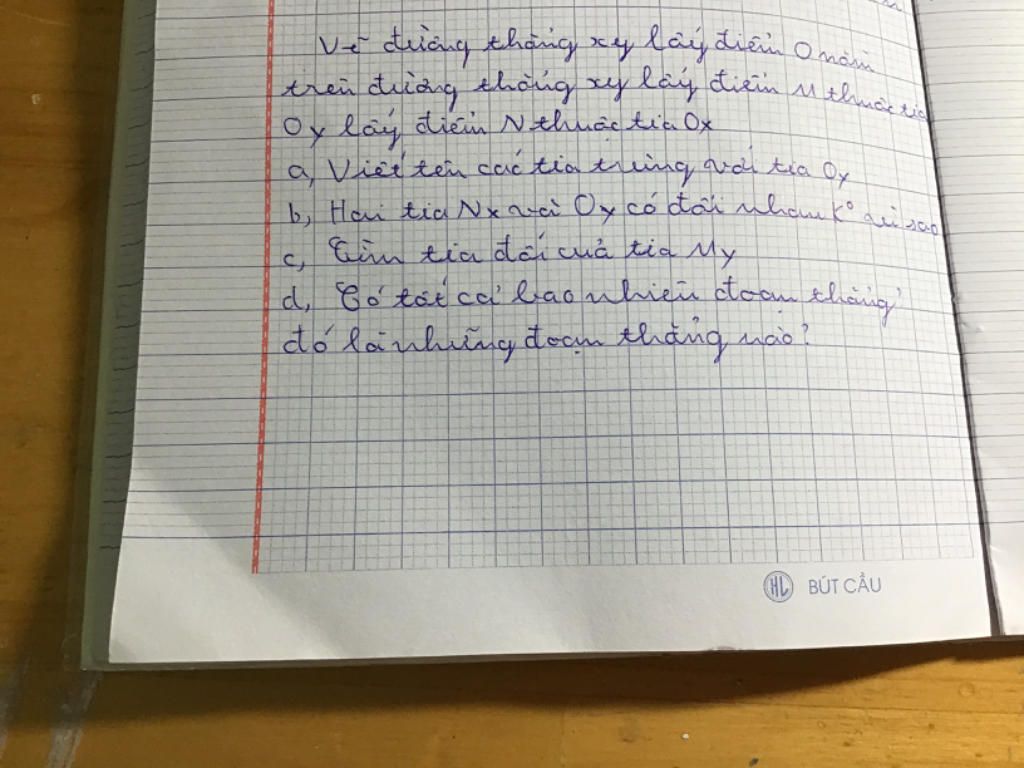 Vẽ đường thẳng xy lấy điểm O nằm
trên đường thẳng xy lấy điểm M thuộc tia
Oy lấy điểm N thuộc tia Ox
a, Viết tên các tia trùng với tia Oy
b, Hai tia Nx và Oy có đối nhau k° vì sao
c, Tìm tia đối của tia My
d, Có tất cả bao nhiêu đoạn thẳng
đó là những đoạn thẳng nào?
HL BÚT CẦU